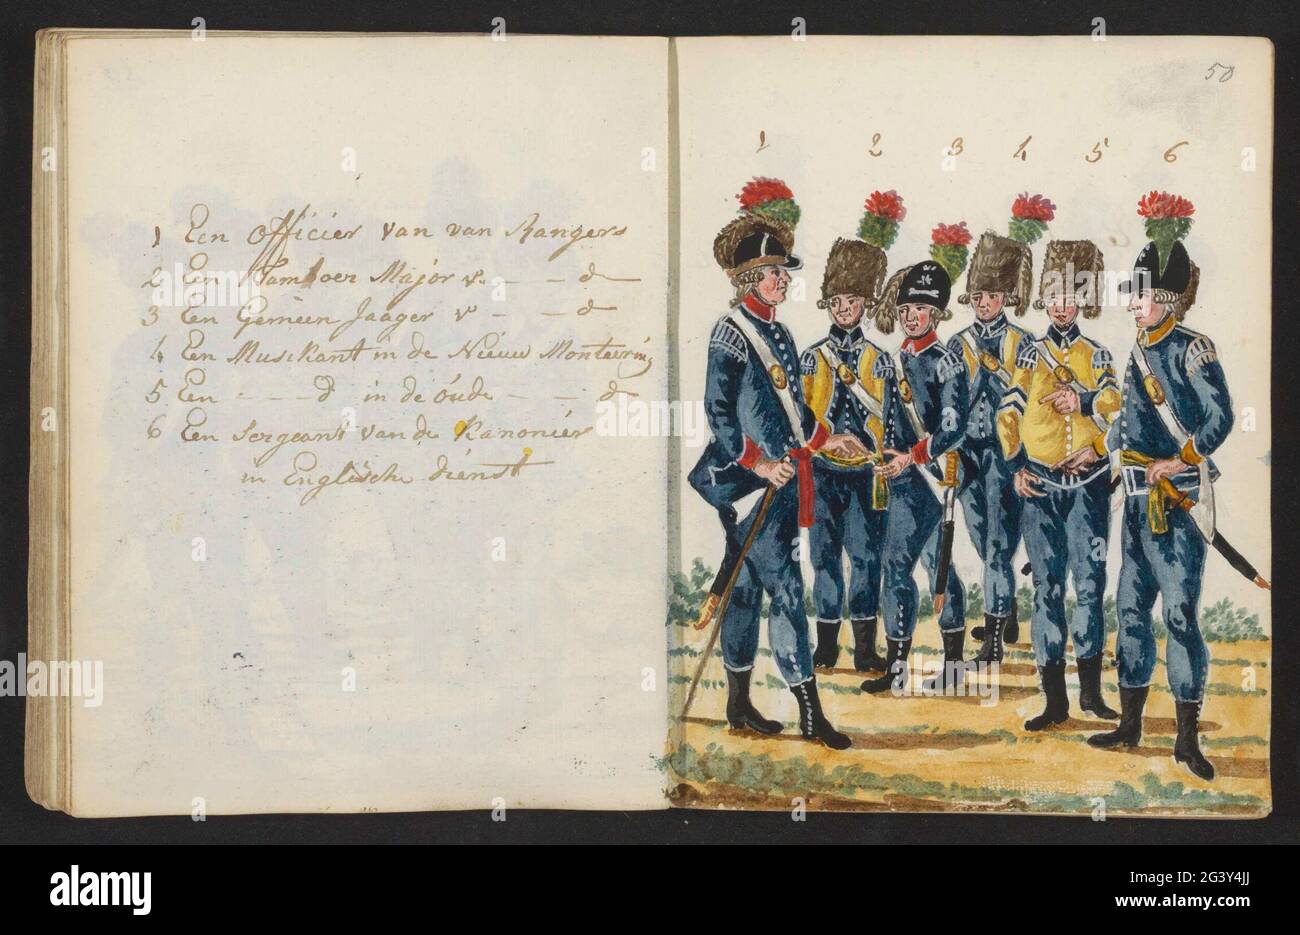 50
1 2 3 4 5 6
1 Een Officier van van Rangers
2 Een Tamboer Major v. - - d
3 Een Gemeen Jaager v - - d
4 Een Musikant in de Nieuw Monteering
5 Een - - - d in de oude - - d
6 Een Sergeant van de Kanonier
in Englische dienst
alamy
Image ID: 2G3Y4JJ
www.alamy.com